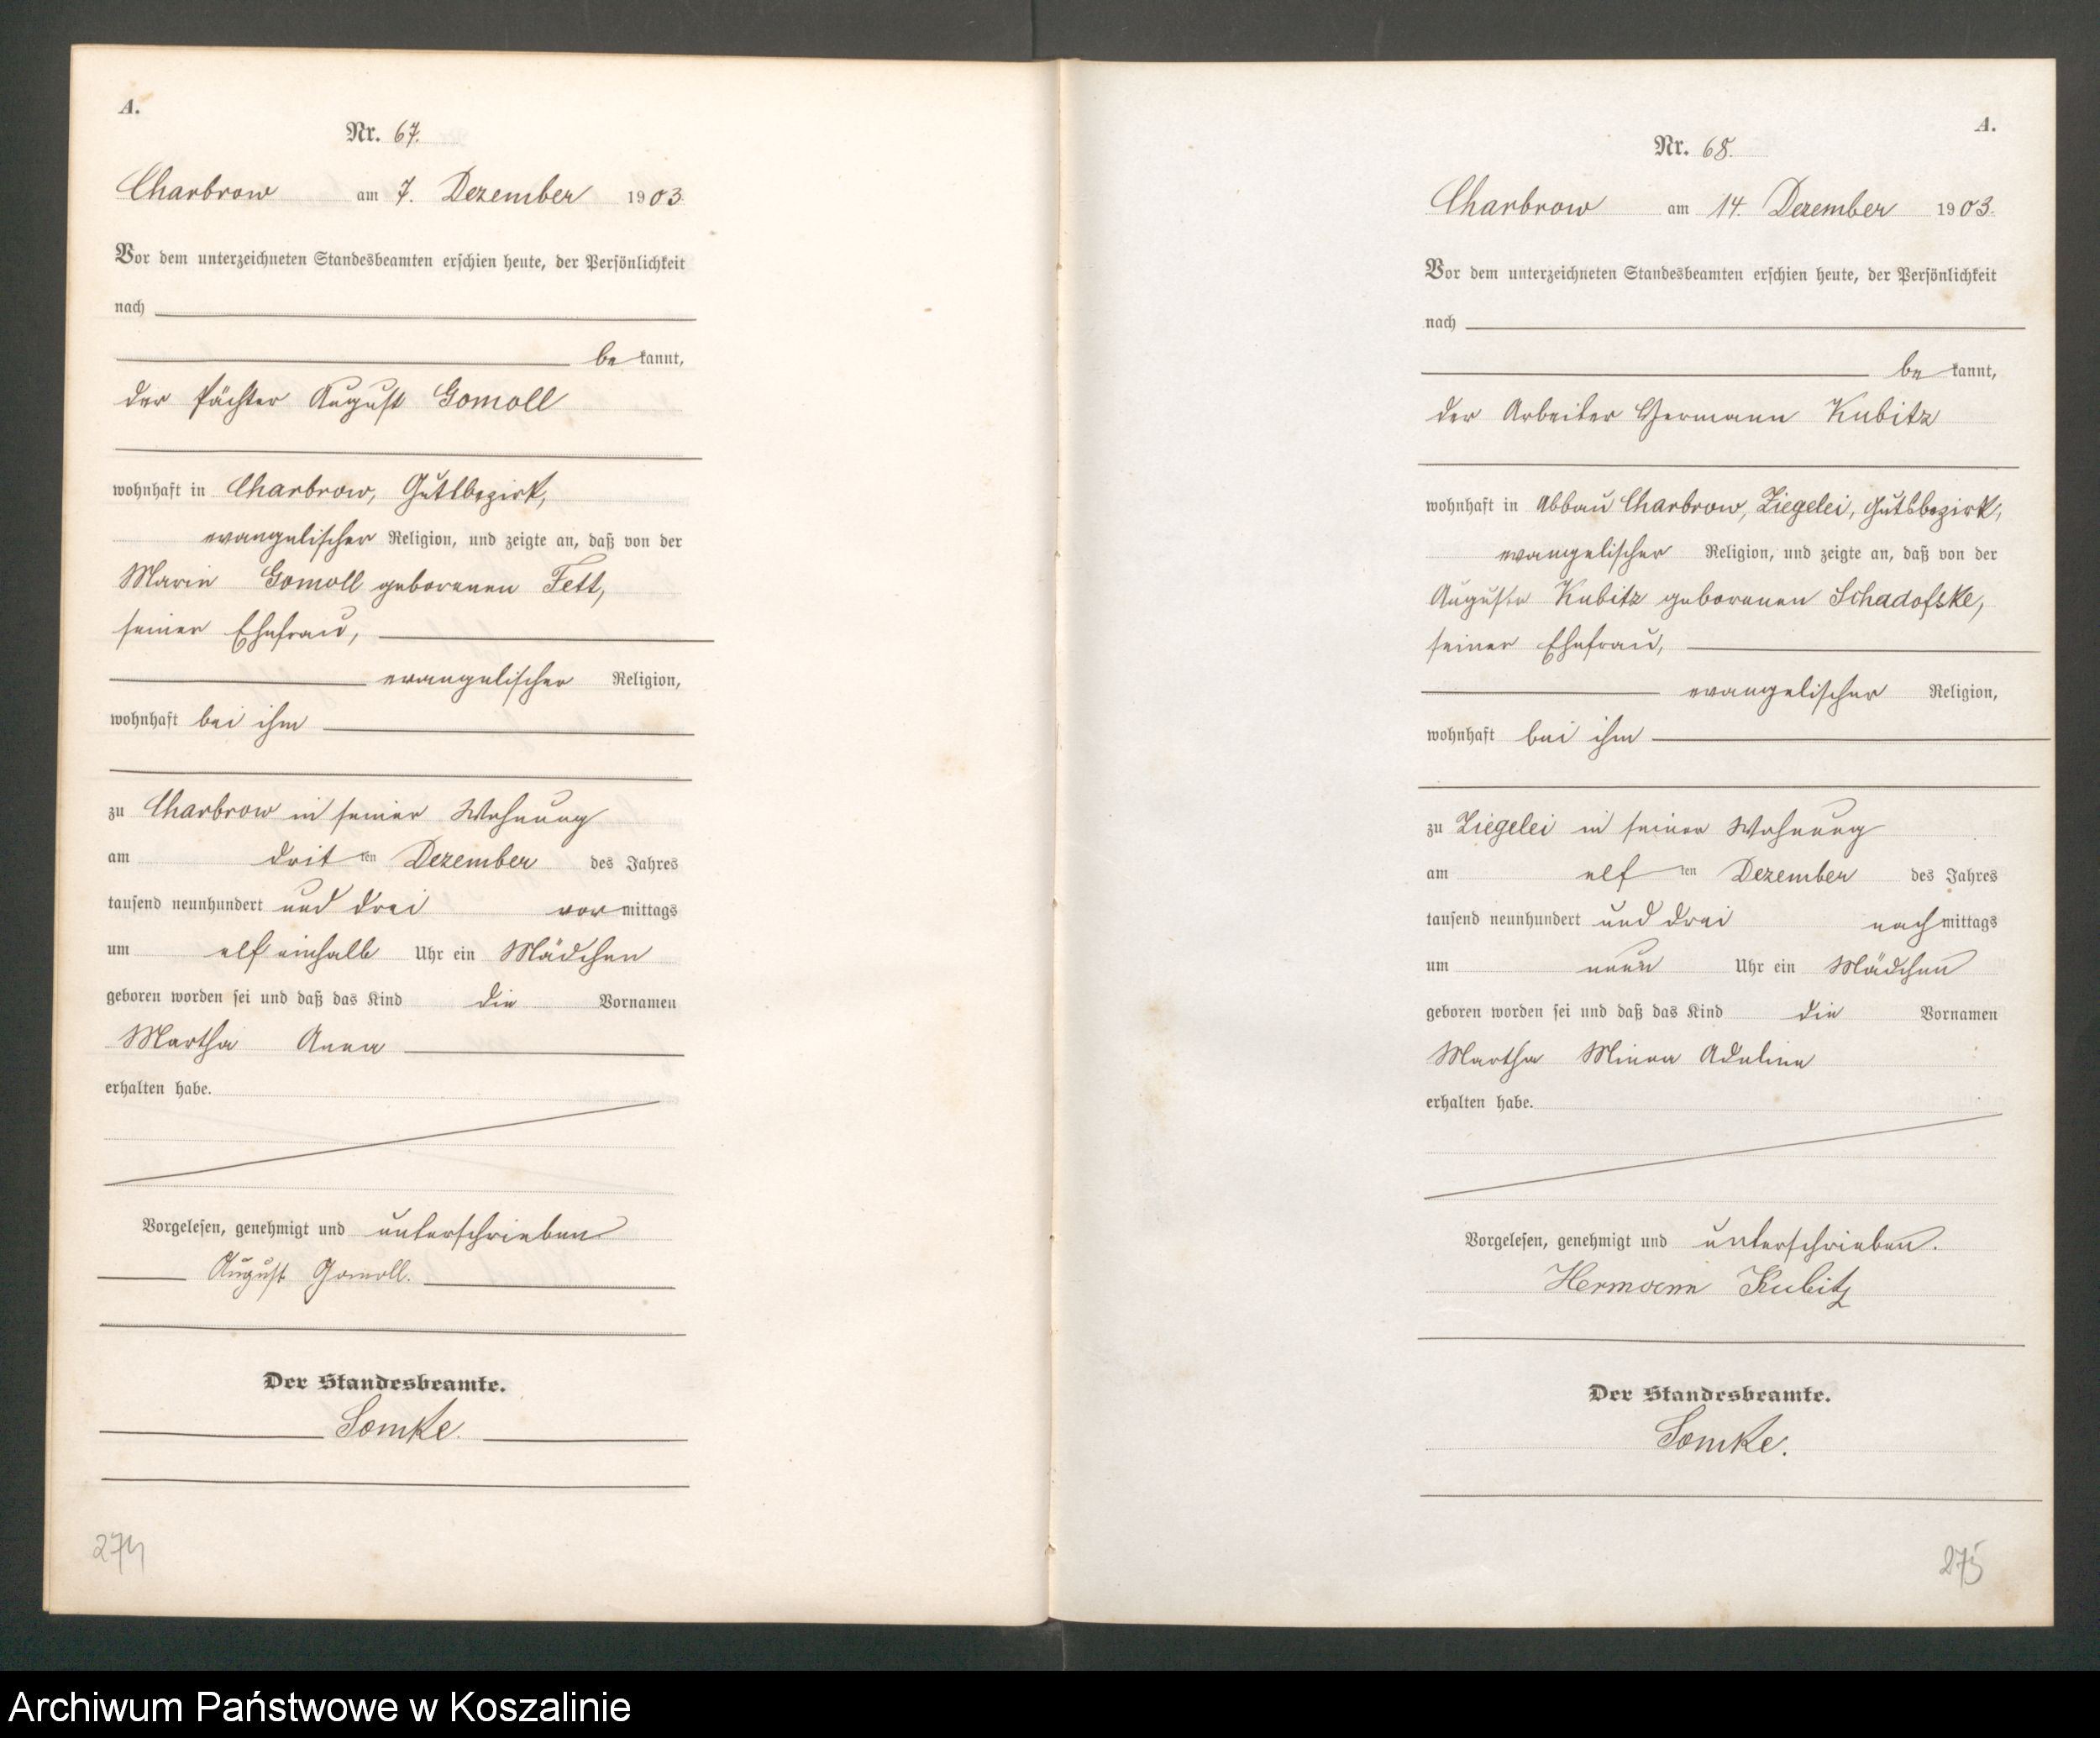 A.
Nr. 67.
Charbrow am 7. Dezember 1903
Vor dem unterzeichneten Standesbeamten erschien heute, der Persönlichkeit
nach
be kannt,
der Pächter August Gomoll
wohnhaft in Charbrow, Gutsbezirk,
evangelischer Religion, und zeigte an, daß von der
Marie Gomoll geborenen Fett,
seiner Ehefrau,
evangelischer Religion,
wohnhaft bei ihm
zu Charbrow in seiner Wohnung
am dritten Dezember des Jahres
tausend neunhundert und drei vormittags
um elf einhalb Uhr ein Mädchen
geboren worden sei und daß das Kind die Vornamen
Martha Anna
erhalten habe.
Vorgelesen, genehmigt und unterschrieben
August Gomoll.
Der Standesbeamte.
Somke.
274
A.
Nr. 68.
Charbrow am 14. Dezember 1903.
Vor dem unterzeichneten Standesbeamten erschien heute, der Persönlichkeit
nach
be kannt,
der Arbeiter Hermann Kubitz
wohnhaft in Abbau Charbrow, Ziegelei, Gutsbezirk,
evangelischer Religion, und zeigte an, daß von der
Auguste Kubitz geborenen Schadofske,
seiner Ehefrau,
evangelischer Religion,
wohnhaft bei ihm
zu Ziegelei in seiner Wohnung
am elften Dezember des Jahres
tausend neunhundert und drei nachmittags
um neun Uhr ein Mädchen
geboren worden sei und daß das Kind die Vornamen
Martha Minna Adeline
erhalten habe.
Vorgelesen, genehmigt und unterschrieben.
Hermann Kubitz
Der Standesbeamte.
Somke.
275
Archiwum Państwowe w Koszalinie